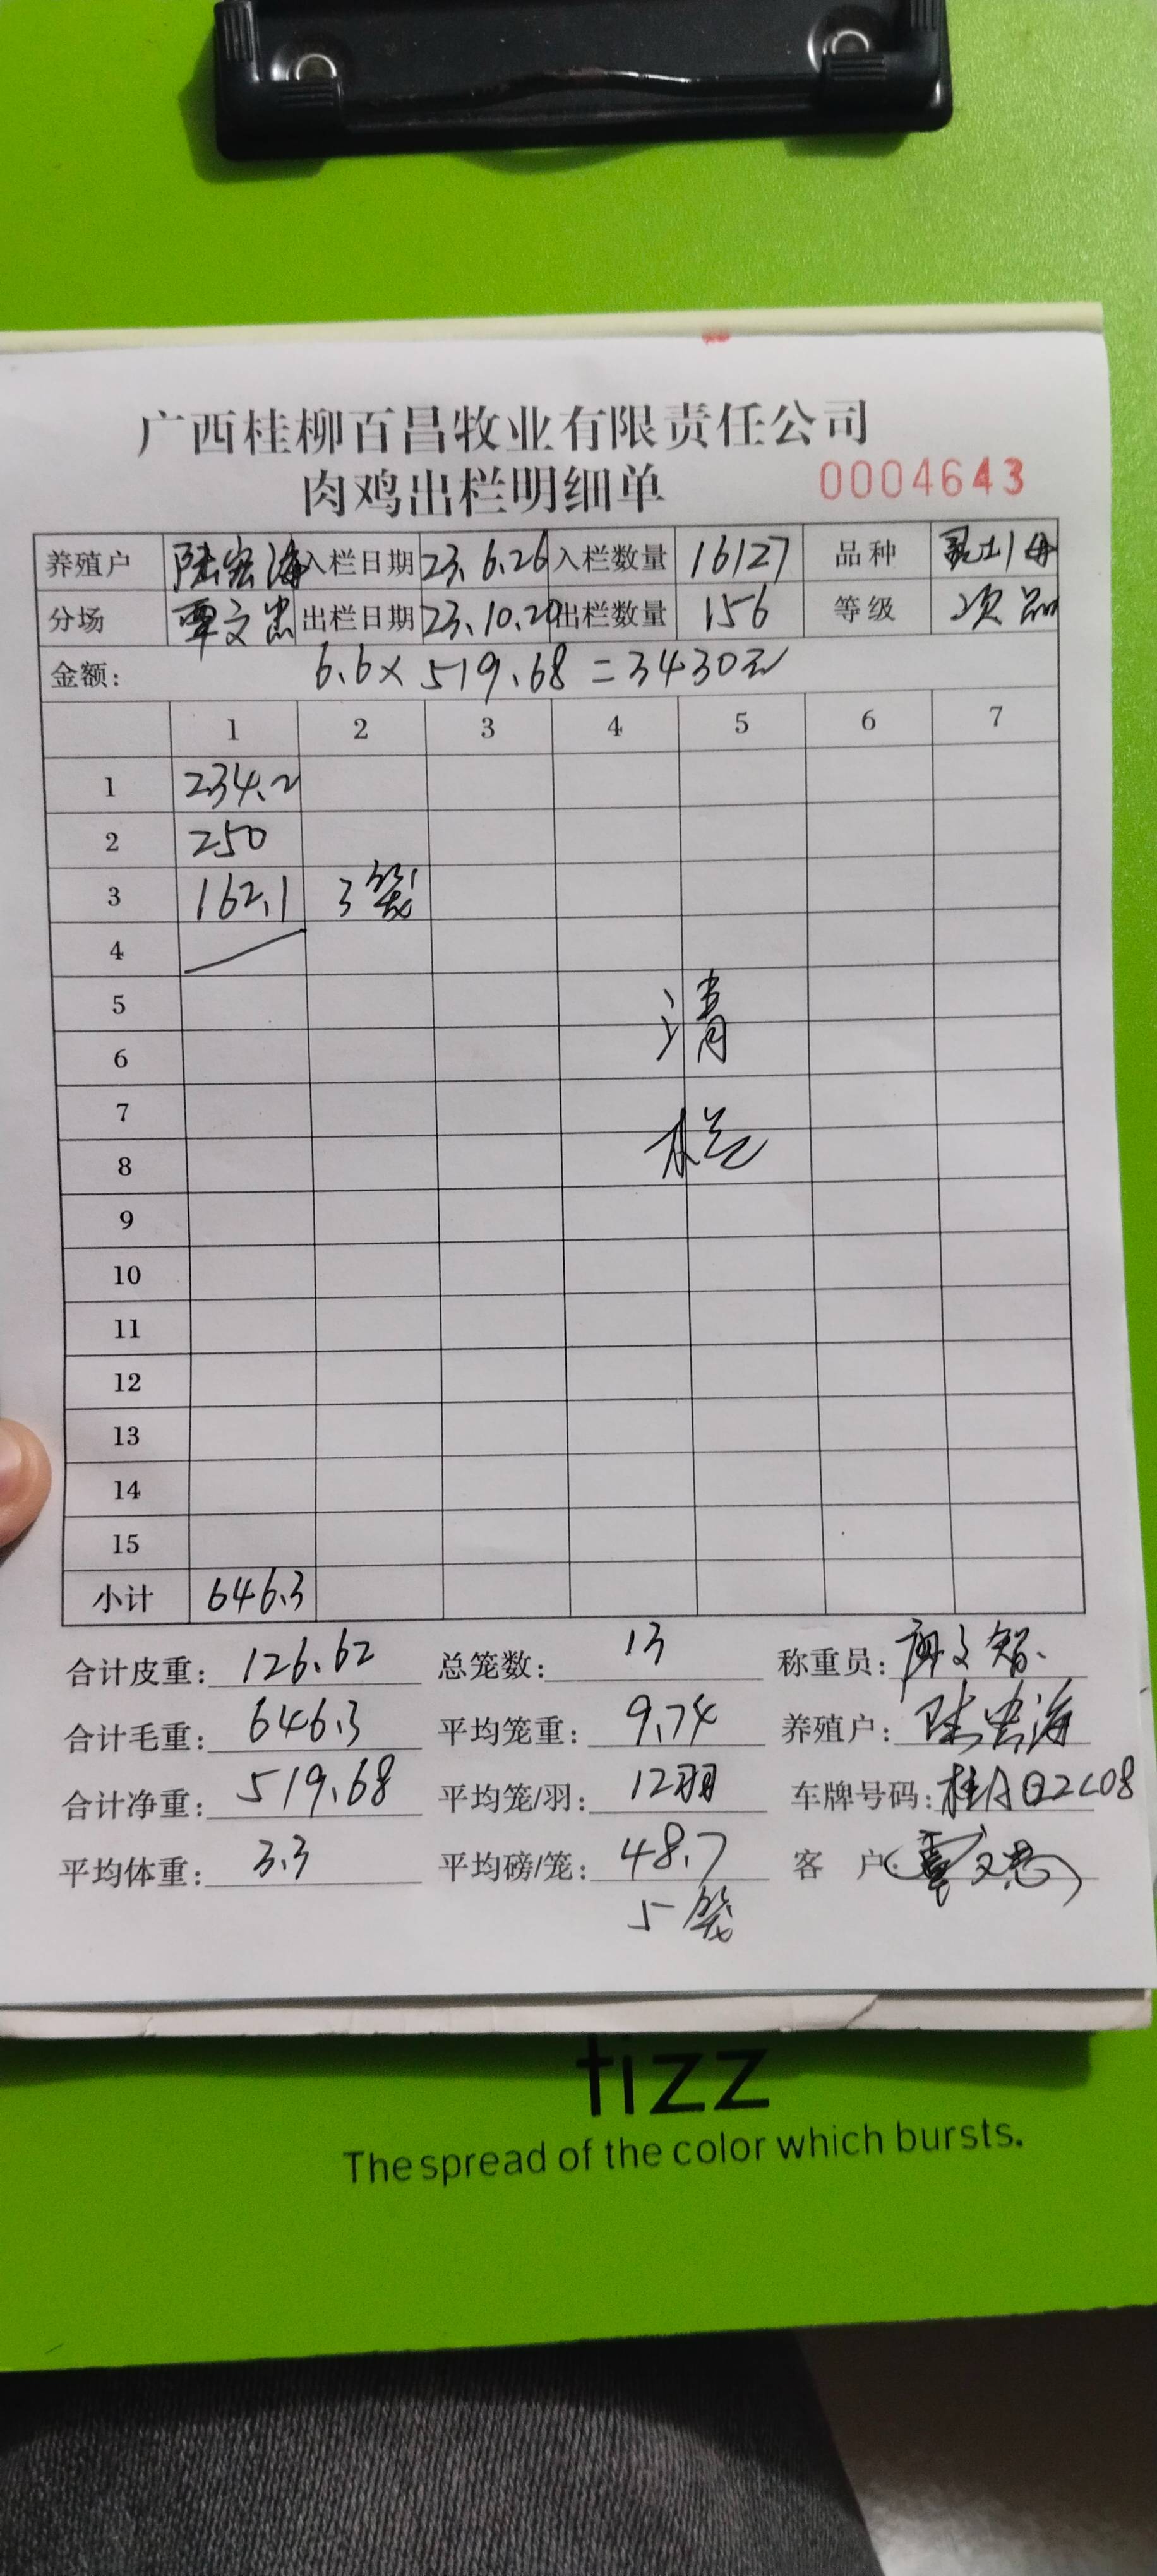 广西桂柳百昌牧业有限责任公司
肉鸡出栏明细单 0004643
养殖户 陆宏海 入栏日期 23.6.26 入栏数量 16127 品种
分场 覃文忠 出栏日期 23.10.20 出栏数量 156 等级 次品
金额: 6.6× 519.68 =3430元
1 2 3 4 5 6 7
1 234.2
2 250
3 162.1 3笼
4
5 清
6
7
8 栏
9
10
11
12
13
14
15
小计 646.3
合计皮重: 126.62 总笼数: 13 称重员: 文智
合计毛重: 646.3 平均笼重: 9.74 养殖户: 陆宏海
合计净重: 519.68 平均笼/羽: 12羽 车牌号码:
平均体重: 3.3 平均磅/笼: 48.7 客 户: 覃文忠
5笼
tizz
The spread of the color which bursts.